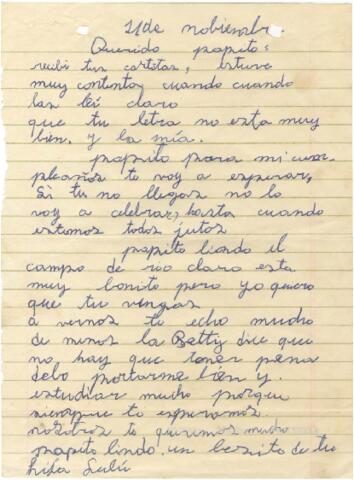 21 de nobiembre.
Querido papito:
recibi tus cartitas, estuve
muy contenta, cuando cuando
las leí claro
que tu letra no esta muy
bien. y la mía.
papito para mi cum
pleaños te voy a esperar,
Si tu no llegas no lo
voy a celebrar, hasta cuando
estemos todos jutos
papito lindo el
campo de rio claro esta
muy bonito pero yo quiero
que tu vengas
a vernos te echo mucho
de menos la Betty dice que
no hay que toner pena
debo portarme bién y.
estudiar mucho porque
siempre te esperamos
nosotros te queremos mucho
papito lindo. un besito de tu
hija Lulú